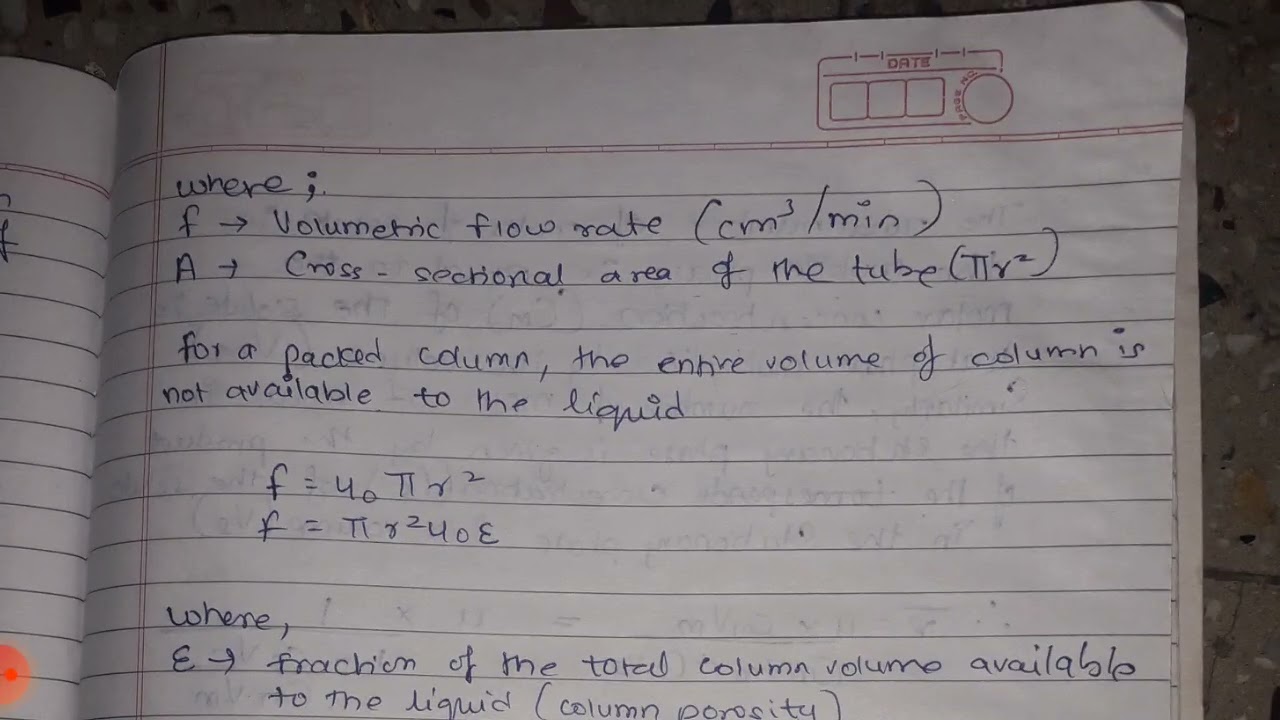 DATE
PAGE NO.
where ;
f → Volumetric flow rate (cm³/min.)
A → Cross-sectional area of the tube (πr²)
for a packed column, the entire volume of column is
not available to the liquid
f = u₀ πr²
f = πr²u₀ε
where,
ε → fraction of the total column volume available
to the liquid (column porosity)